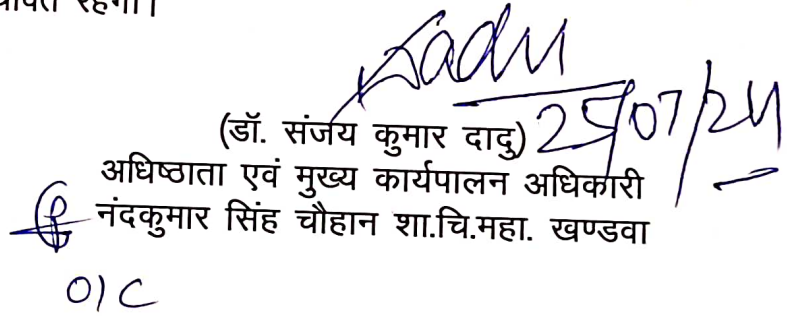 रहेगा।
Dadu
(डॉ. संजय कुमार दादु) 25/07/24
अधिष्ठाता एवं मुख्य कार्यपालन अधिकारी
नंदकुमार सिंह चौहान शा.चि.महा. खण्डवा
O/C